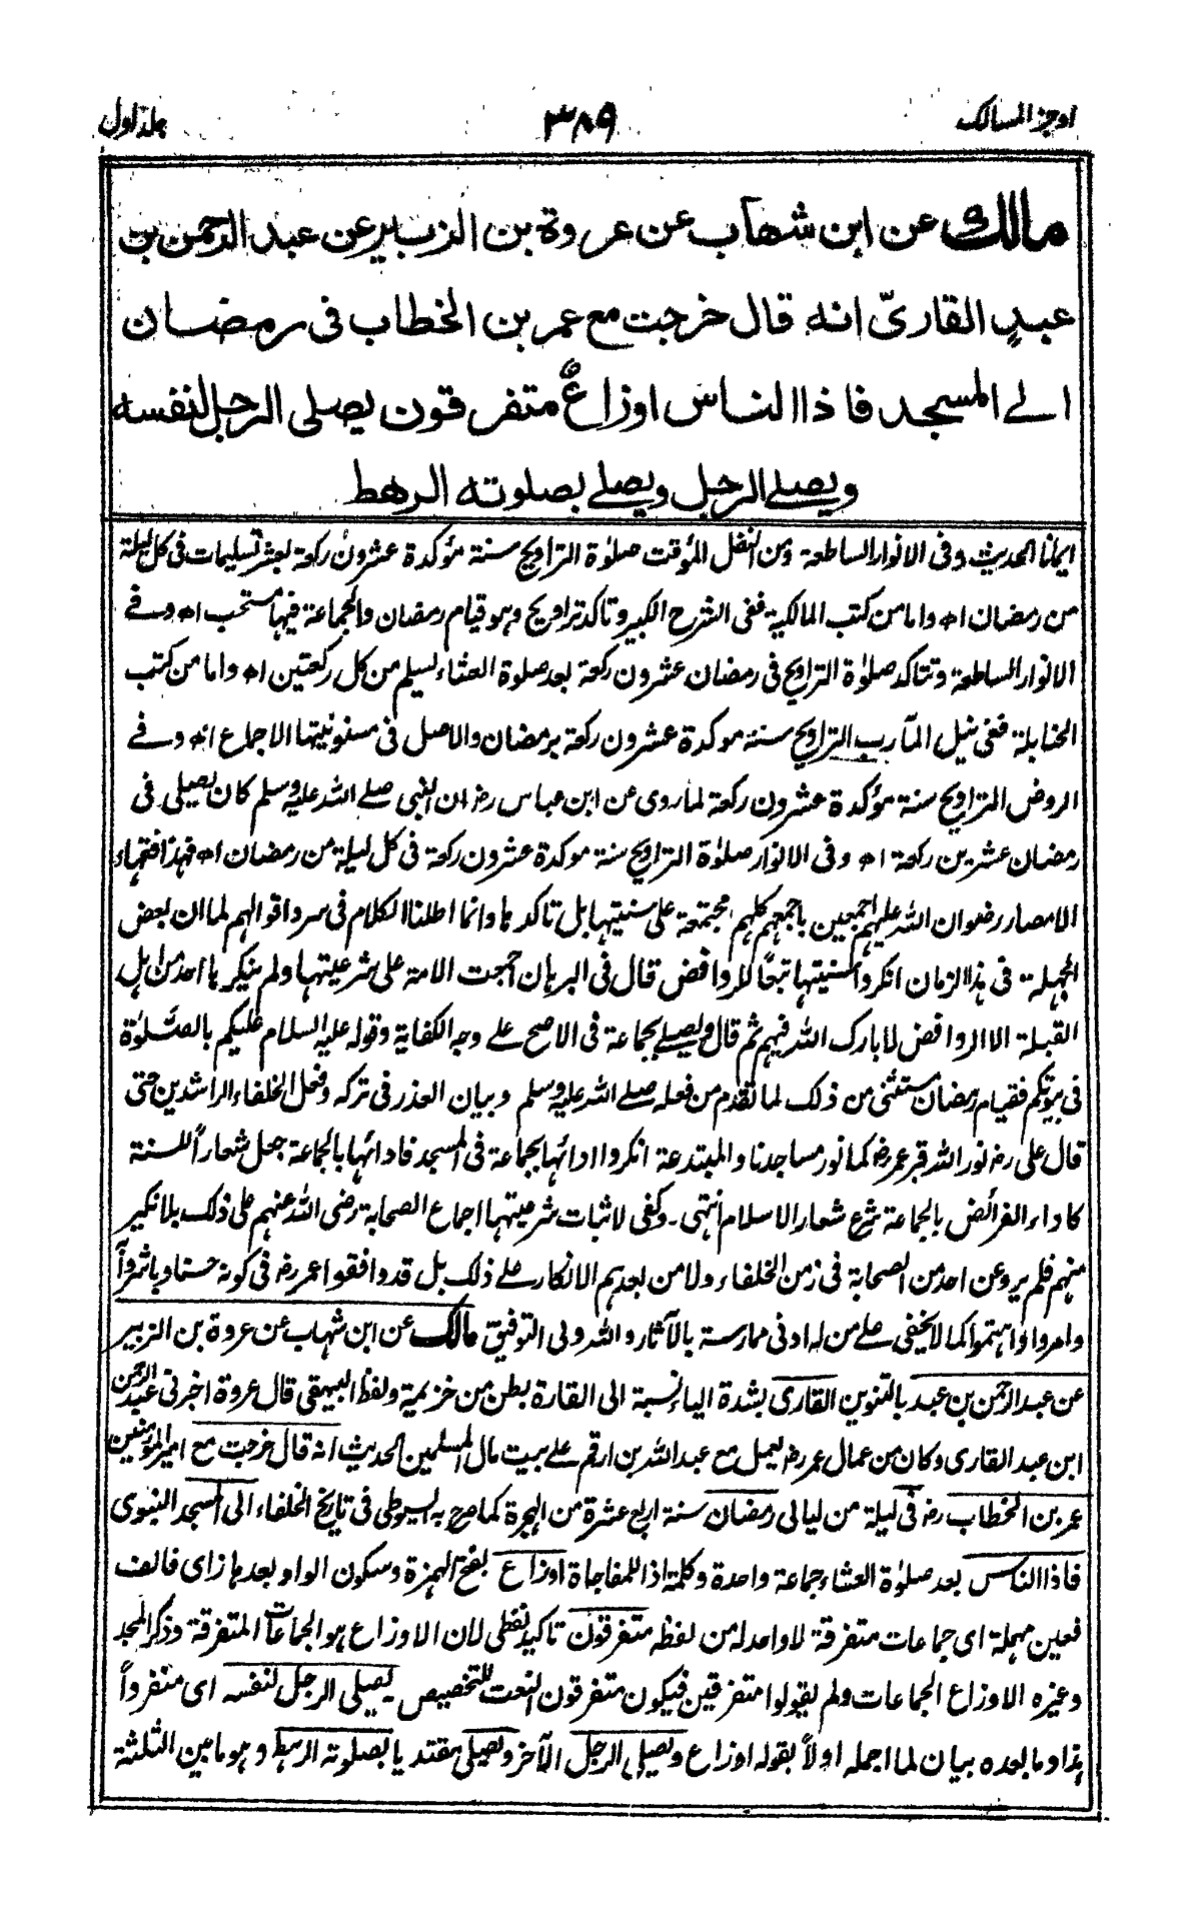 اوجز المسالك ٣٨٩ جلد اول
مالك عن ابن شهاب عن عروة بن الزبير عن عبد الرحمن بن
عبدٍ القاريّ انه قال خرجت مع عمر بن الخطاب فى رمضان
الے المسجد فاذا الناس اوزاعٌ متفرقون يصلى الرجل لنفسه
ويصلے الرجل ويصلے بصلوته الرهط
ايمانا الحديث وفى الانوار الساطعة ومن النفل المؤقت صلوٰة التراويح سنة مؤكدة عشرون ركعة بعشر تسليمات فى كل ليلة
من رمضان اھ واما من كتب المالكية ففى الشرح الكبير وتاكد تراويح وهو قيام رمضان والجماعة فيها مستحب اھ وفے
الانوار الساطعة وتتاكد صلوٰة التراويح فى رمضان عشرون ركعة بعد صلوة العشاء يسلم من كل ركعتين اھ واما من كتب
الحنابلة ففى نيل المآرب التراويح سنة موكدة عشرون ركعة برمضان والاصل فى مسنونيتها الاجماع اھ وفے
الروض التراويح سنة مؤكدة عشرون ركعة لما روى عن ابن عباس رضـ ان النبى صلے الله عليه وسلم كان يصلى فى
رمضان عشرين ركعة اھ وفى الانوار صلوٰة التراويح سنة موكدة عشرون ركعة فى كل ليلة من رمضان اھ فهذا فقهاء
الامصار رضوان الله عليهم اجمعين باجمعهم كلهم مجتمعة على سنيتها بل تاكدها وانما اطلنا الكلام فى سرد اقوالهم لما ان بعض
الجهلة فى هذا الزمان انكروا سنيتها تبعًا للروافض قال فى البرهان اجمعت الامة على شرعيتها ولم ينكرها احد من اهل
القبلة الا الروافض لا بارك الله فيهم ثم قال ويصلے بجماعة فى الاصح علے وجه الكفاية وقوله عليه السلام عليكم بالصّلوٰة
فى بيوتكم فقيام رمضان مستثنى من ذلك لما تقدم من فعله صلے الله عليه وسلم وبيان العذر فى تركه وفعل الخلفاء الراشدين حتى
قال على رضـ نور الله قبر عمر رضـ كما نور مساجدنا والمبتدعة انكروا ادائها بجماعة فى المسجد فادائها بالجماعة جعل شعاراً للسنة
كاداء الفرائض بالجماعة شرع شعار الاسلام انتهى ۔ وكفى لاثبات شرعيتها اجماع الصحابة رضى الله عنهم على ذلك بلا نكير
منهم فلم يرو عن احد من الصحابة فى زمن الخلفاء ولا من بعدهم الانكار علے ذلك بل قد وافقوا عمر رضـ فى كونه حسنا وباشروآ
وامروا واهتموا كما لا يخفى علے من له ادنى ممارسة بالآثار والله ولى التوفيق مالك عن ابن شهاب عن عروة بن الزبير
عن عبد الرحمٰن بن عبد بالتنوين القارى بشدة الياء نسبة الى القارة بطن من خزيمة ولفظ البيهقى قال عروة اخبرنى عبد الرحمٰن
ابن عبد القارى وكان من عمال عمر رضـ يعمل مع عبد الله بن ارقم علے بيت مال المسلمين الحديث انه قال خرجت مع امير المؤمنين
عمر بن الخطاب رضـ فى ليلة من ليالى رمضان سنة اربع عشرة من الهجرة كما صرح به السيوطى فى تاريخ الخلفاء الى المسجد النبوى
فاذا الناس بعد صلوٰة العشاء جماعة واحدة وكلمة اذا للمفاجاة اوزاع بفتح الهمزة وسكون الواو بعدها زاى فالف
فعين مهملة اى جماعات متفرقة لا واحد له من لفظه متفرقون تاكيد لفظى لان الاوزاع هو الجماعات المتفرقة وذكر المجد
وغيره الاوزاع الجماعات ولم يقولوا متفرقين فيكون متفرقون النعت للتخصيص يصلى الرجل لنفسه اى منفرداً
هذا وما بعده بيان لما اجمله اولاً بقوله اوزاع ويصلى الرجل الآخر ويصلى مقتديا بصلوته الرهط وهو ما بين الثلثة